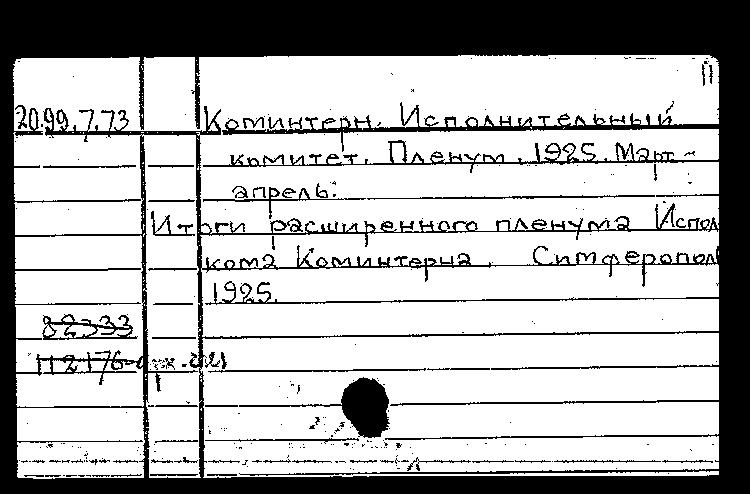 П
20.99.7.73 Коминтерн. Исполнительный
комитет. Пленум. 1925. Март -
апрель:
Итоги расширенного пленума Испол
кома Коминтерна. Симферопол
1925.
82333
112176